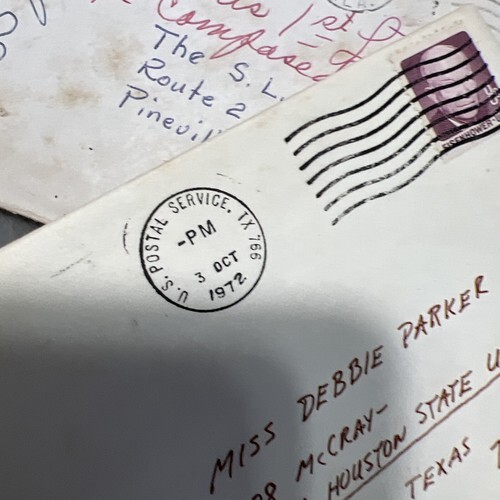 1st
Composed
The S. L.
Route 2
U.S. POSTAL SERVICE, TX 766
-PM
3 OCT
1972
EISENHOWER
MISS DEBBIE PARKER
McCRAY-
HOUSTON STATE U
TEXAS